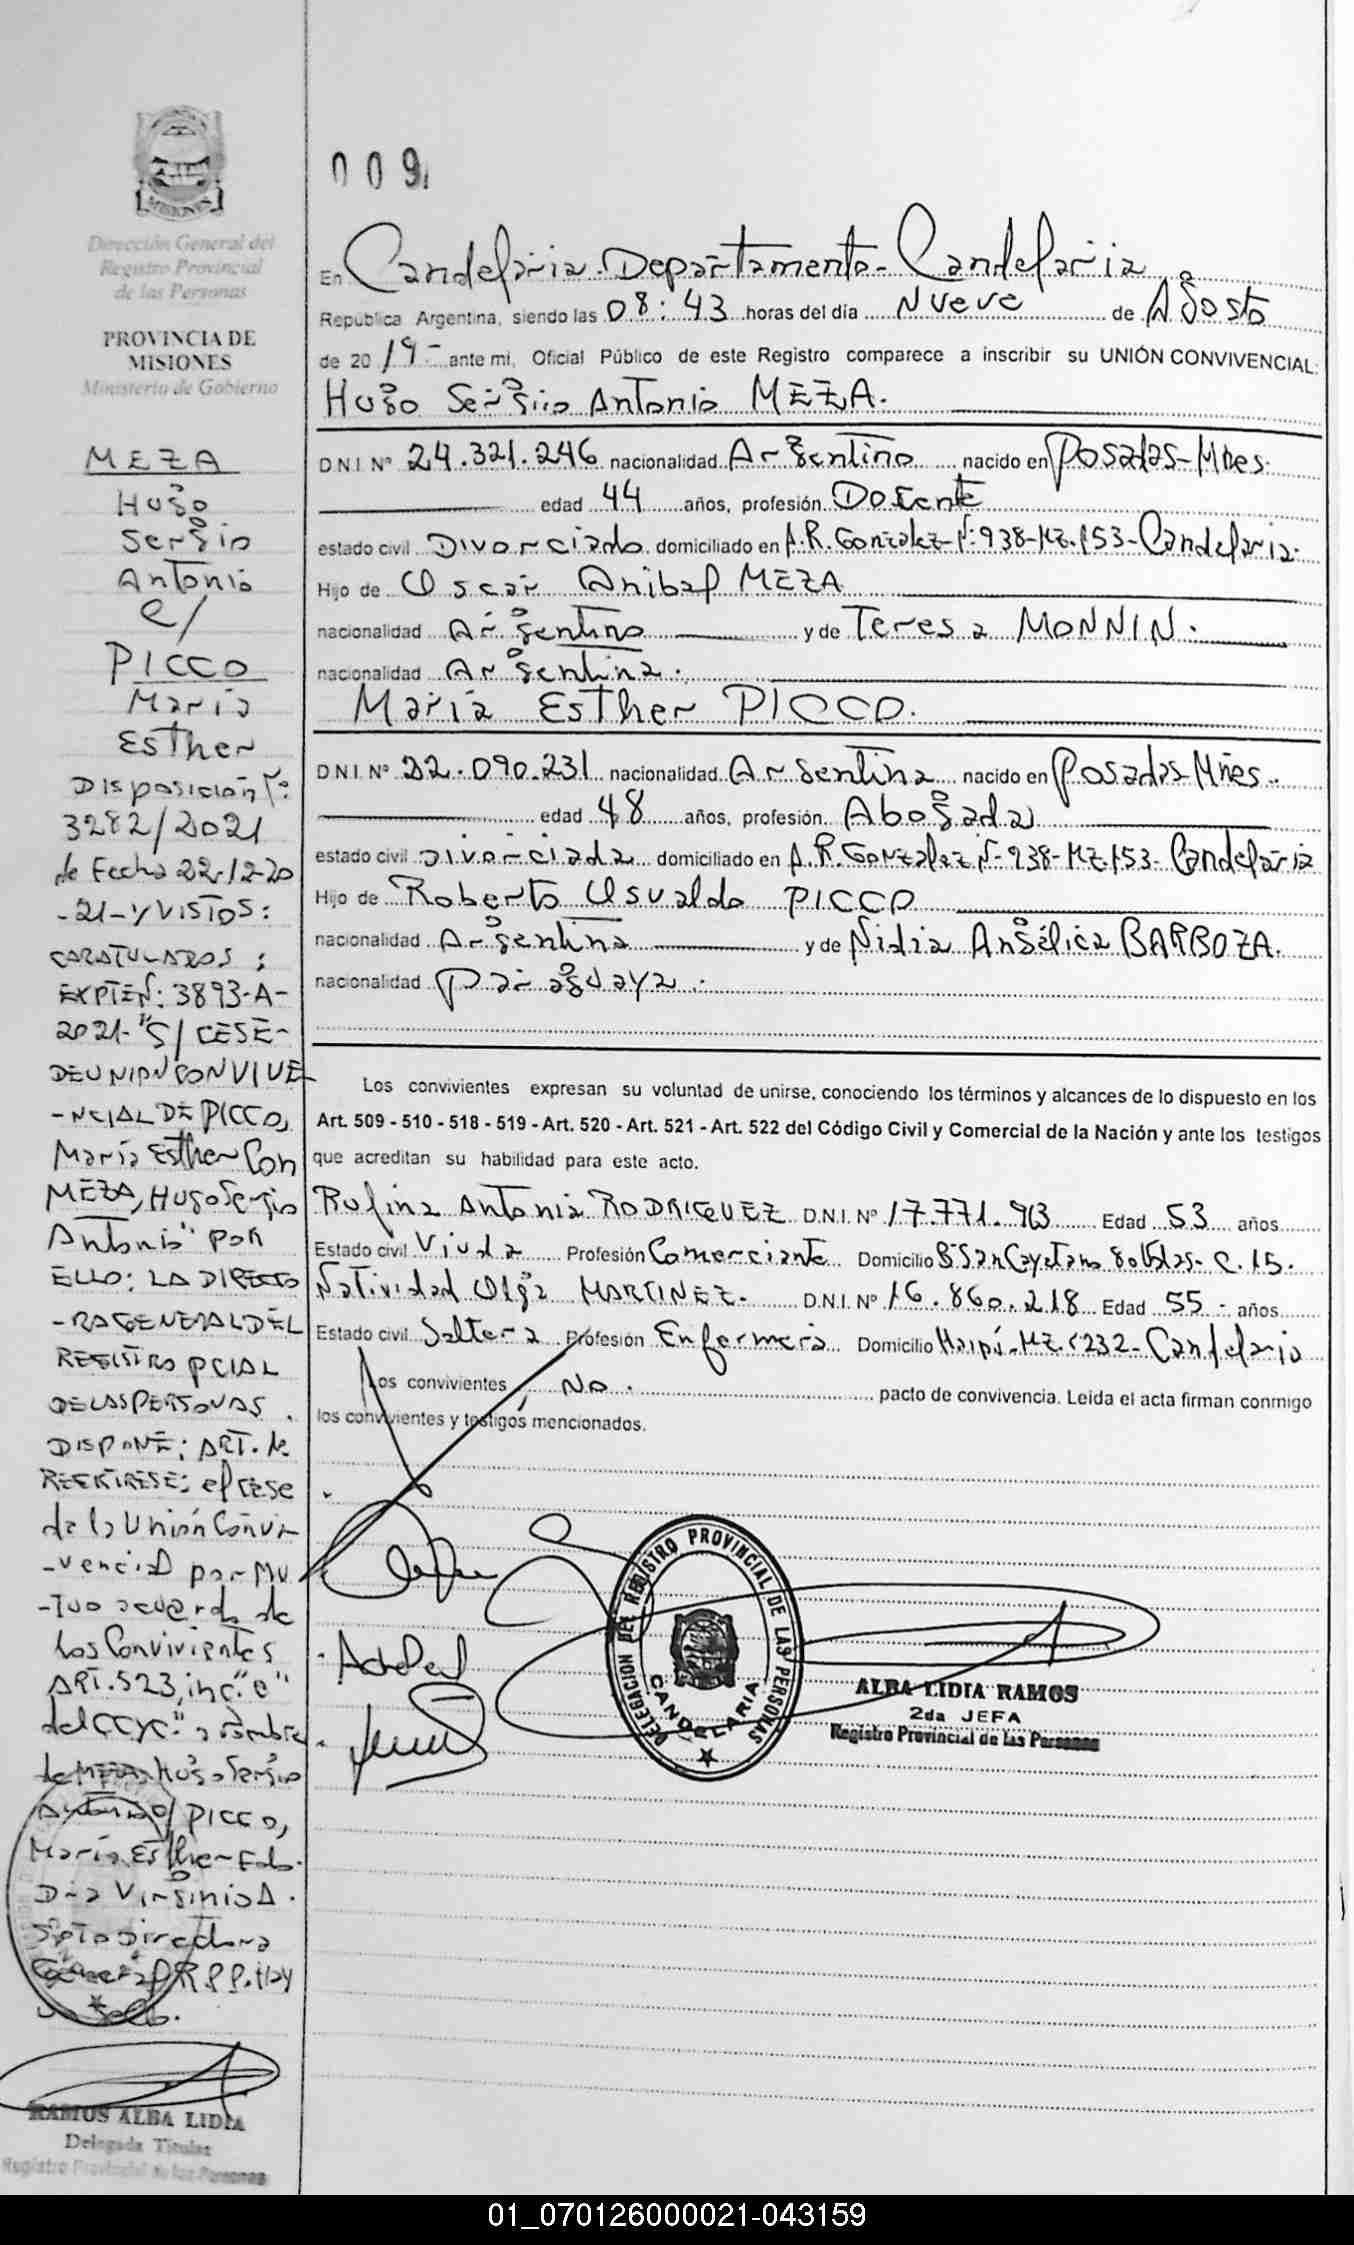 MISIONES
Dirección General del
Registro Provincial
de las Personas
PROVINCIA DE
MISIONES
Ministerio de Gobierno
MEZA
Hugo
Sergio
Antonio
c/
PICCO
María
Esther
Disposición Nº:
3282/2021
de Fecha 22-12-20
-21-y VISTOS:
CARATULADOS:
EXPTE Nº: 3893-A-
2021-"S/CESE-
DE UNION CONVIVE
-NCIAL DE PICCO,
María Esther Con
MEZA, Hugo Sergio
Antonio" por
ELLO: LA DIRECTO
-RA GENERAL DEL
REGISTRO PCIAL
DE LAS PERSONAS.
DISPONE: ART. 1º
REGISTRESE: el cese
de la Unión Convi-
-vencial por MU
-TUO acuerdo de
los Convivientes
ART. 523, inc. "e"
del CCyC." a nombre
de MEZA, Hugo Sergio
Antonio c/ PICCO,
María Esther-Fdo.
Dra Virginia A.
Soto Directora
General R.P.P. Hay
un Sello.
RAMOS ALBA LIDIA
Delegada Titular
Registro Provincial de las Personas
009
En Candelaria-Departamento-Candelaria
República Argentina, siendo las 08:43 horas del día Nueve de Agosto
de 2019- ante mi, Oficial Público de este Registro comparece a inscribir su UNIÓN CONVIVENCIAL:
Hugo Sergio Antonio MEZA.
D.N.I. Nº 24.321.246 nacionalidad Argentino nacido en Posadas-Mnes.
edad 44 años, profesión Docente
estado civil Divorciado domiciliado en A.R. Gonzalez-Nº:938-Mz.153-Candelaria.
Hijo de Oscar Anibal MEZA
nacionalidad Argentino y de Teresa MONNIN.
nacionalidad Argentina.
María Esther PICCO.
D.N.I. Nº 22.090.231 nacionalidad Argentina nacido en Posadas-Mnes.
edad 48 años, profesión Abogada
estado civil Divorciada domiciliado en A.R. Gonzalez Nº-938-Mz.153-Candelaria
Hijo de Roberto Osvaldo PICCO
nacionalidad Argentina y de Nidia Angélica BARBOZA.
nacionalidad Paraguaya.
Los convivientes expresan su voluntad de unirse, conociendo los términos y alcances de lo dispuesto en los
Art. 509 - 510 - 518 - 519 - Art. 520 - Art. 521 - Art. 522 del Código Civil y Comercial de la Nación y ante los testigos
que acreditan su habilidad para este acto.
Rufina Antonia RODRIGUEZ D.N.I. Nº 17.771.913 Edad 53 años
Estado civil Viuda Profesión Comerciante Domicilio Bº San Cayetano C.15.
Natividad Olga MARTINEZ. D.N.I. Nº 16.860.218 Edad 55- años
Estado civil Soltera Profesión Enfermera Domicilio Mz. 232-Candelaria
Los convivientes No. pacto de convivencia. Leida el acta firman conmigo
los convivientes y testigos mencionados.
DELEGACION DEL REGISTRO PROVINCIAL DE LAS PERSONAS
CANDELARIA
ALBA LIDIA RAMOS
2da JEFA
Registro Provincial de las Personas
01_070126000021-043159